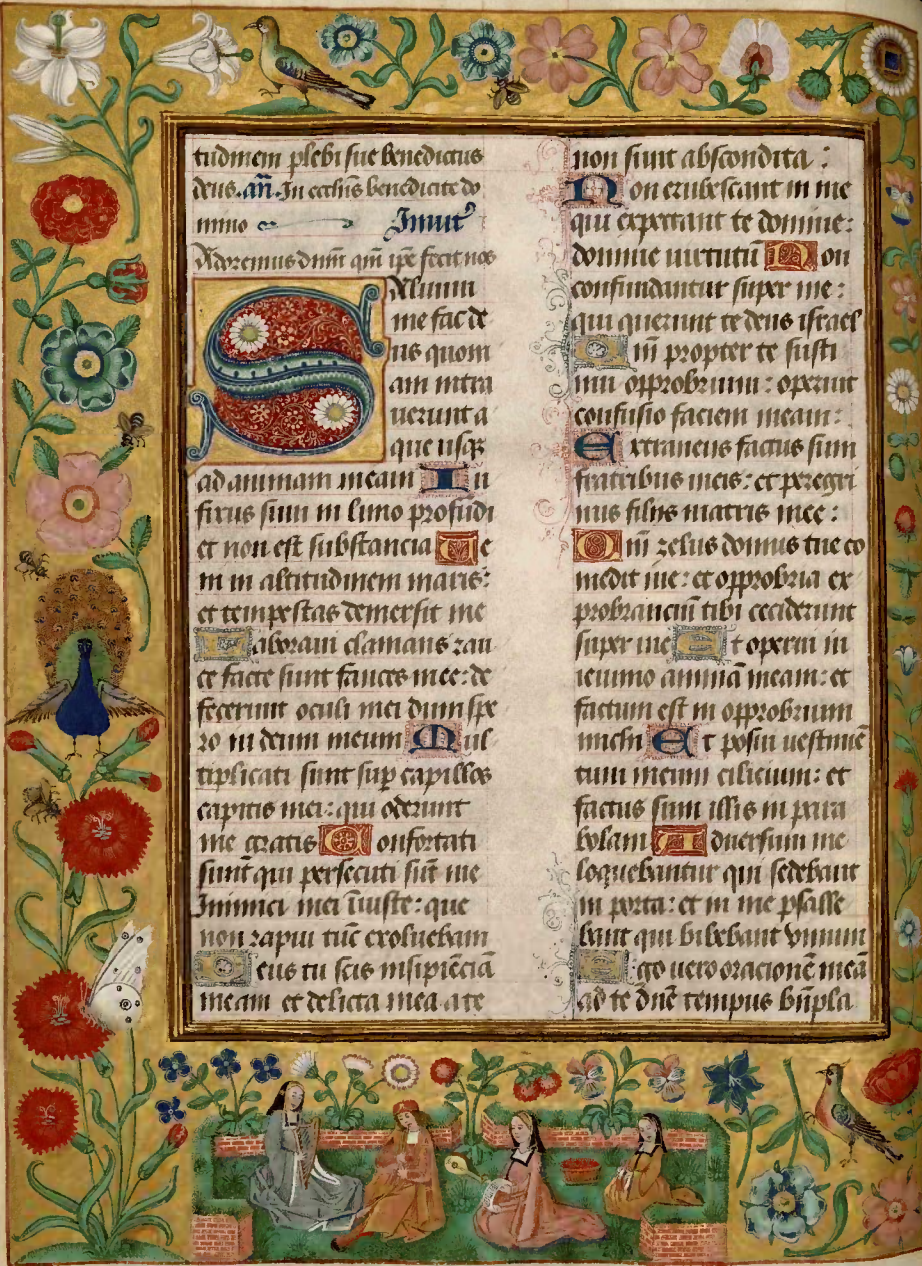 tudinem plebi sue benedictus
deus. an̄. In eccīis benedicite do
mino Inuit
Adoremus dn̄m qm̄ ip̄e fecit nos
Saluum
me fac de
us quom
am intra
uerunt a
que usqꝫ
ad animam meam In
fixus sum in limo profūdi
et non est substancia Ve
ni in altitudinem maris:
et tempestas demersit me
Laboraui clamans rau
ce facte sunt fauces mee: de
fecerunt oculi mei dum spe
ro in deum meum Mul
tiplicati sunt sup̄ capillos
capitis mei: qui oderunt
me gratis Confortati
sunt qui persecuti sūt me
Inimici mei īiuste: que
non rapui tūc exoluebam
Deus tu scis insipiēciā
meam et delicta mea a te
non sunt abscondita:
Non erubescant in me
qui expectant te domine:
domine uirtutū Non
confundantur super me:
qui querunt te deus israel
Qm̄ propter te susti
nui opprobrium: operuit
confusio faciem meam:
Extraneus factus sum
fratribus meis: et peregri
nus filiis matris mee:
Qm̄ zelus domus tue co
medit me: et opprobria ex
probranciū tibi ceciderunt
super me Et operui in
ieiunio animā meam: et
factum est in opprobrium
michi Et posui uestimē
tum meum cilicium: et
factus sum illis in para
bolam Aduersum me
loquebantur qui sedebant
in porta: et in me psalle
bant qui bibebant vinum
Ego uero orationē meā
ad te dn̄e tempus bn̄pla